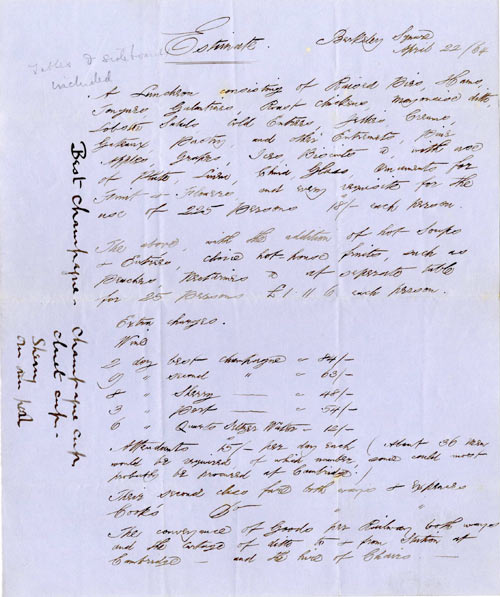 Estimate. Berkeley Square
April 22/64
Tables & sideboard
included
A Luncheon consisting of Raised Pies, Hams,
Tongues, Galantines, Roast chickens, mayonaise ditto
Lobster Salads, Cold Entrées, Jellies, Creams,
Gateaux, Pastry, and other Entremets, Pines
Apples, Grapes, Ices, Biscuits &c with use
of Plate, Linen, China, Glass, ornaments for
Fruit & Flowers, and every requisite for the
use of 225 Persons 18/- each person.
The above, with the addition of hot Soups
& Entrées, choice hot-house fruits, such as
Peaches Nectarines &c at seperate table
for 25 Persons £1.11.6 each person.
Extra charges.
Wine
2 doz best champagne " 84/-
9 " second " 63/-
8 " Sherry — " 48/-
3 " Port — " 54/-
6 " Quarts Seltzer Water — 12/-
Attendants 15/- per day each (About 36 men
would be required, of which number, some could most
probably be procured at Cambridge)
Their second class fare both ways & expences
Cooks Do — " "
The conveyance of Goods per Railway both ways
and the cartage of ditto to & from Station at
Cambridge — and the hire of Chairs —
Best Champagne. Champagne cup
claret cup.
Sherry